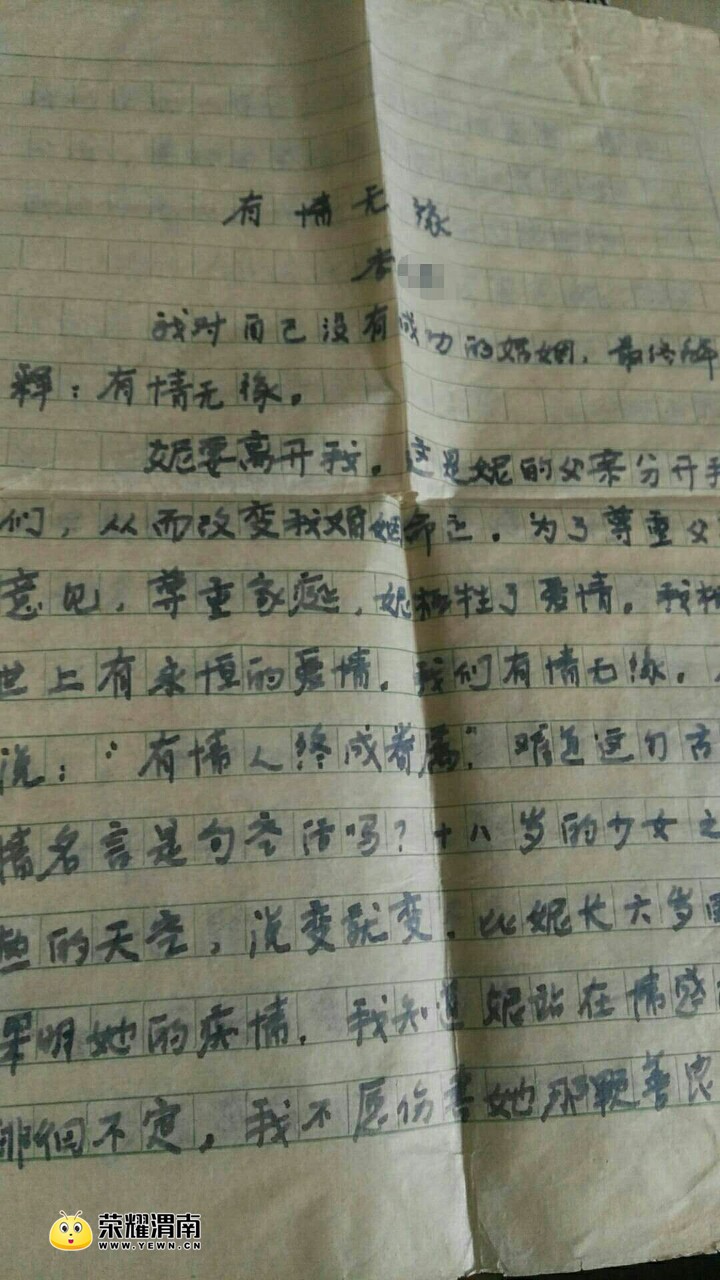 有情无缘
李
我对自己没有成功的婚姻，最终解
释：有情无缘。
妮要离开我。这是妮的父亲分开我
们，从而改变我婚姻命运。为了尊重父
意见，尊重家庭，妮牺牲了爱情。我相
世上有永恒的爱情。我们有情无缘。
说：“有情人终成眷属”难道这句古
情名言是句空话吗？十八岁的少女之
的天空，说变就变，比妮长六岁
明她的痴情。我知道妮站在情感
徘徊不定，我不愿伤害她那颗善良
荣耀渭南
WWW.YEWN.CN